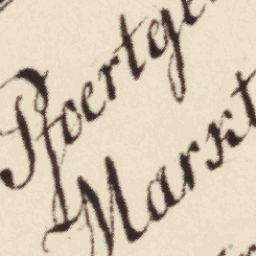 Pfoertge
Markt